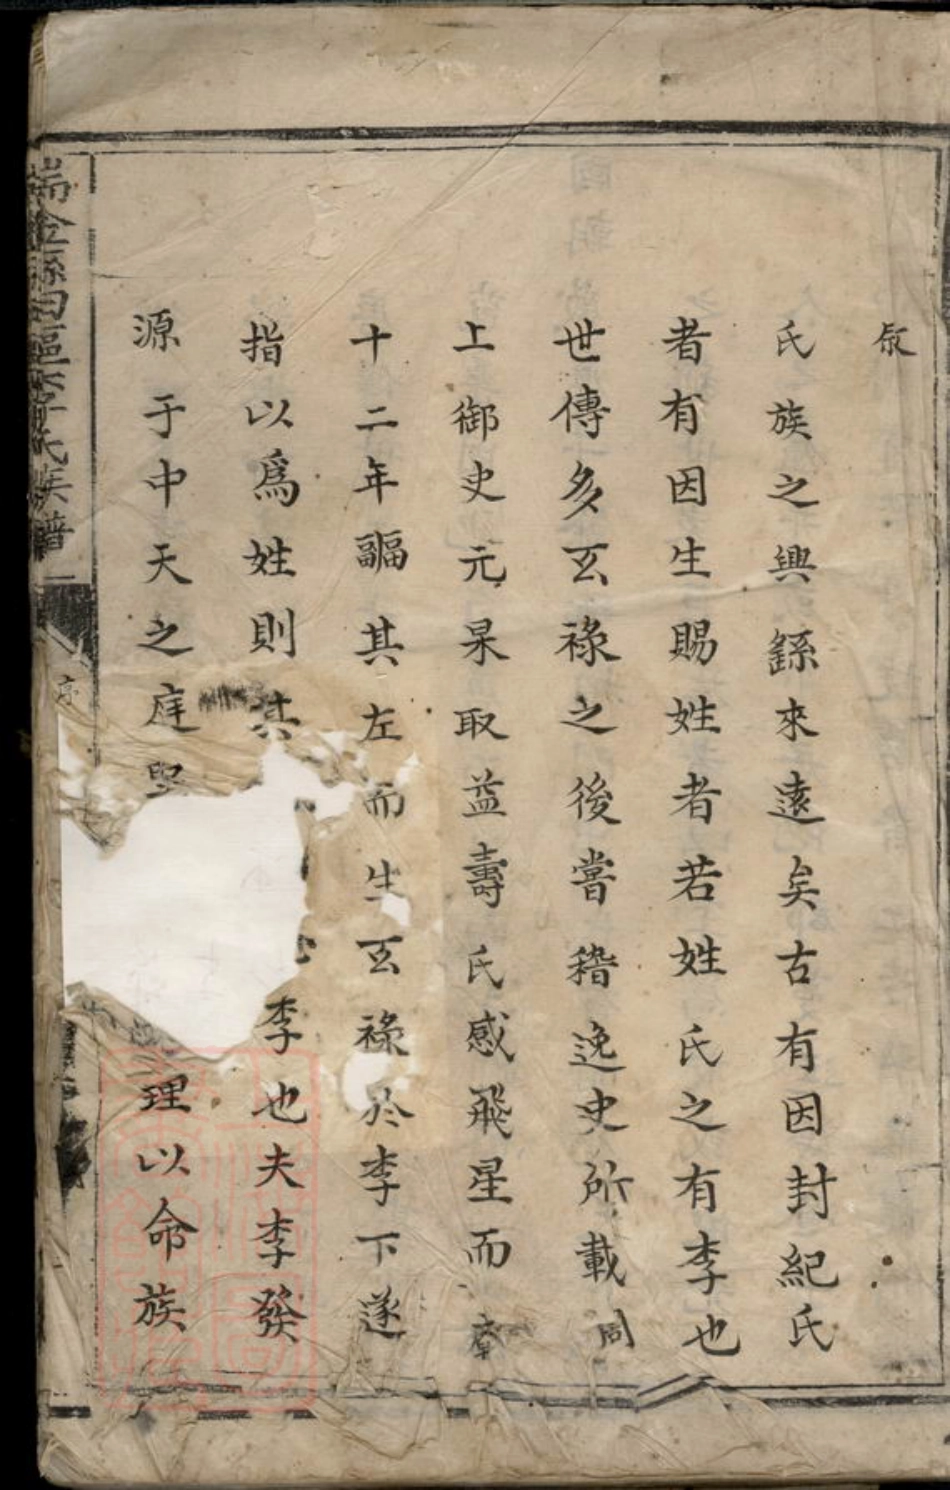 氏族之興繇來遠矣古有因封紀氏
者有因生賜姓者若姓氏之有李也
世傳多玄祿之後嘗稽逸史所載周
上御史元杲取益壽氏感飛星而孕
十二年副其左而生玄祿於李下遂
指以為姓則其李也夫李發
源于中天之庭堅理以命族
瑞金縣田區李氏族譜
序